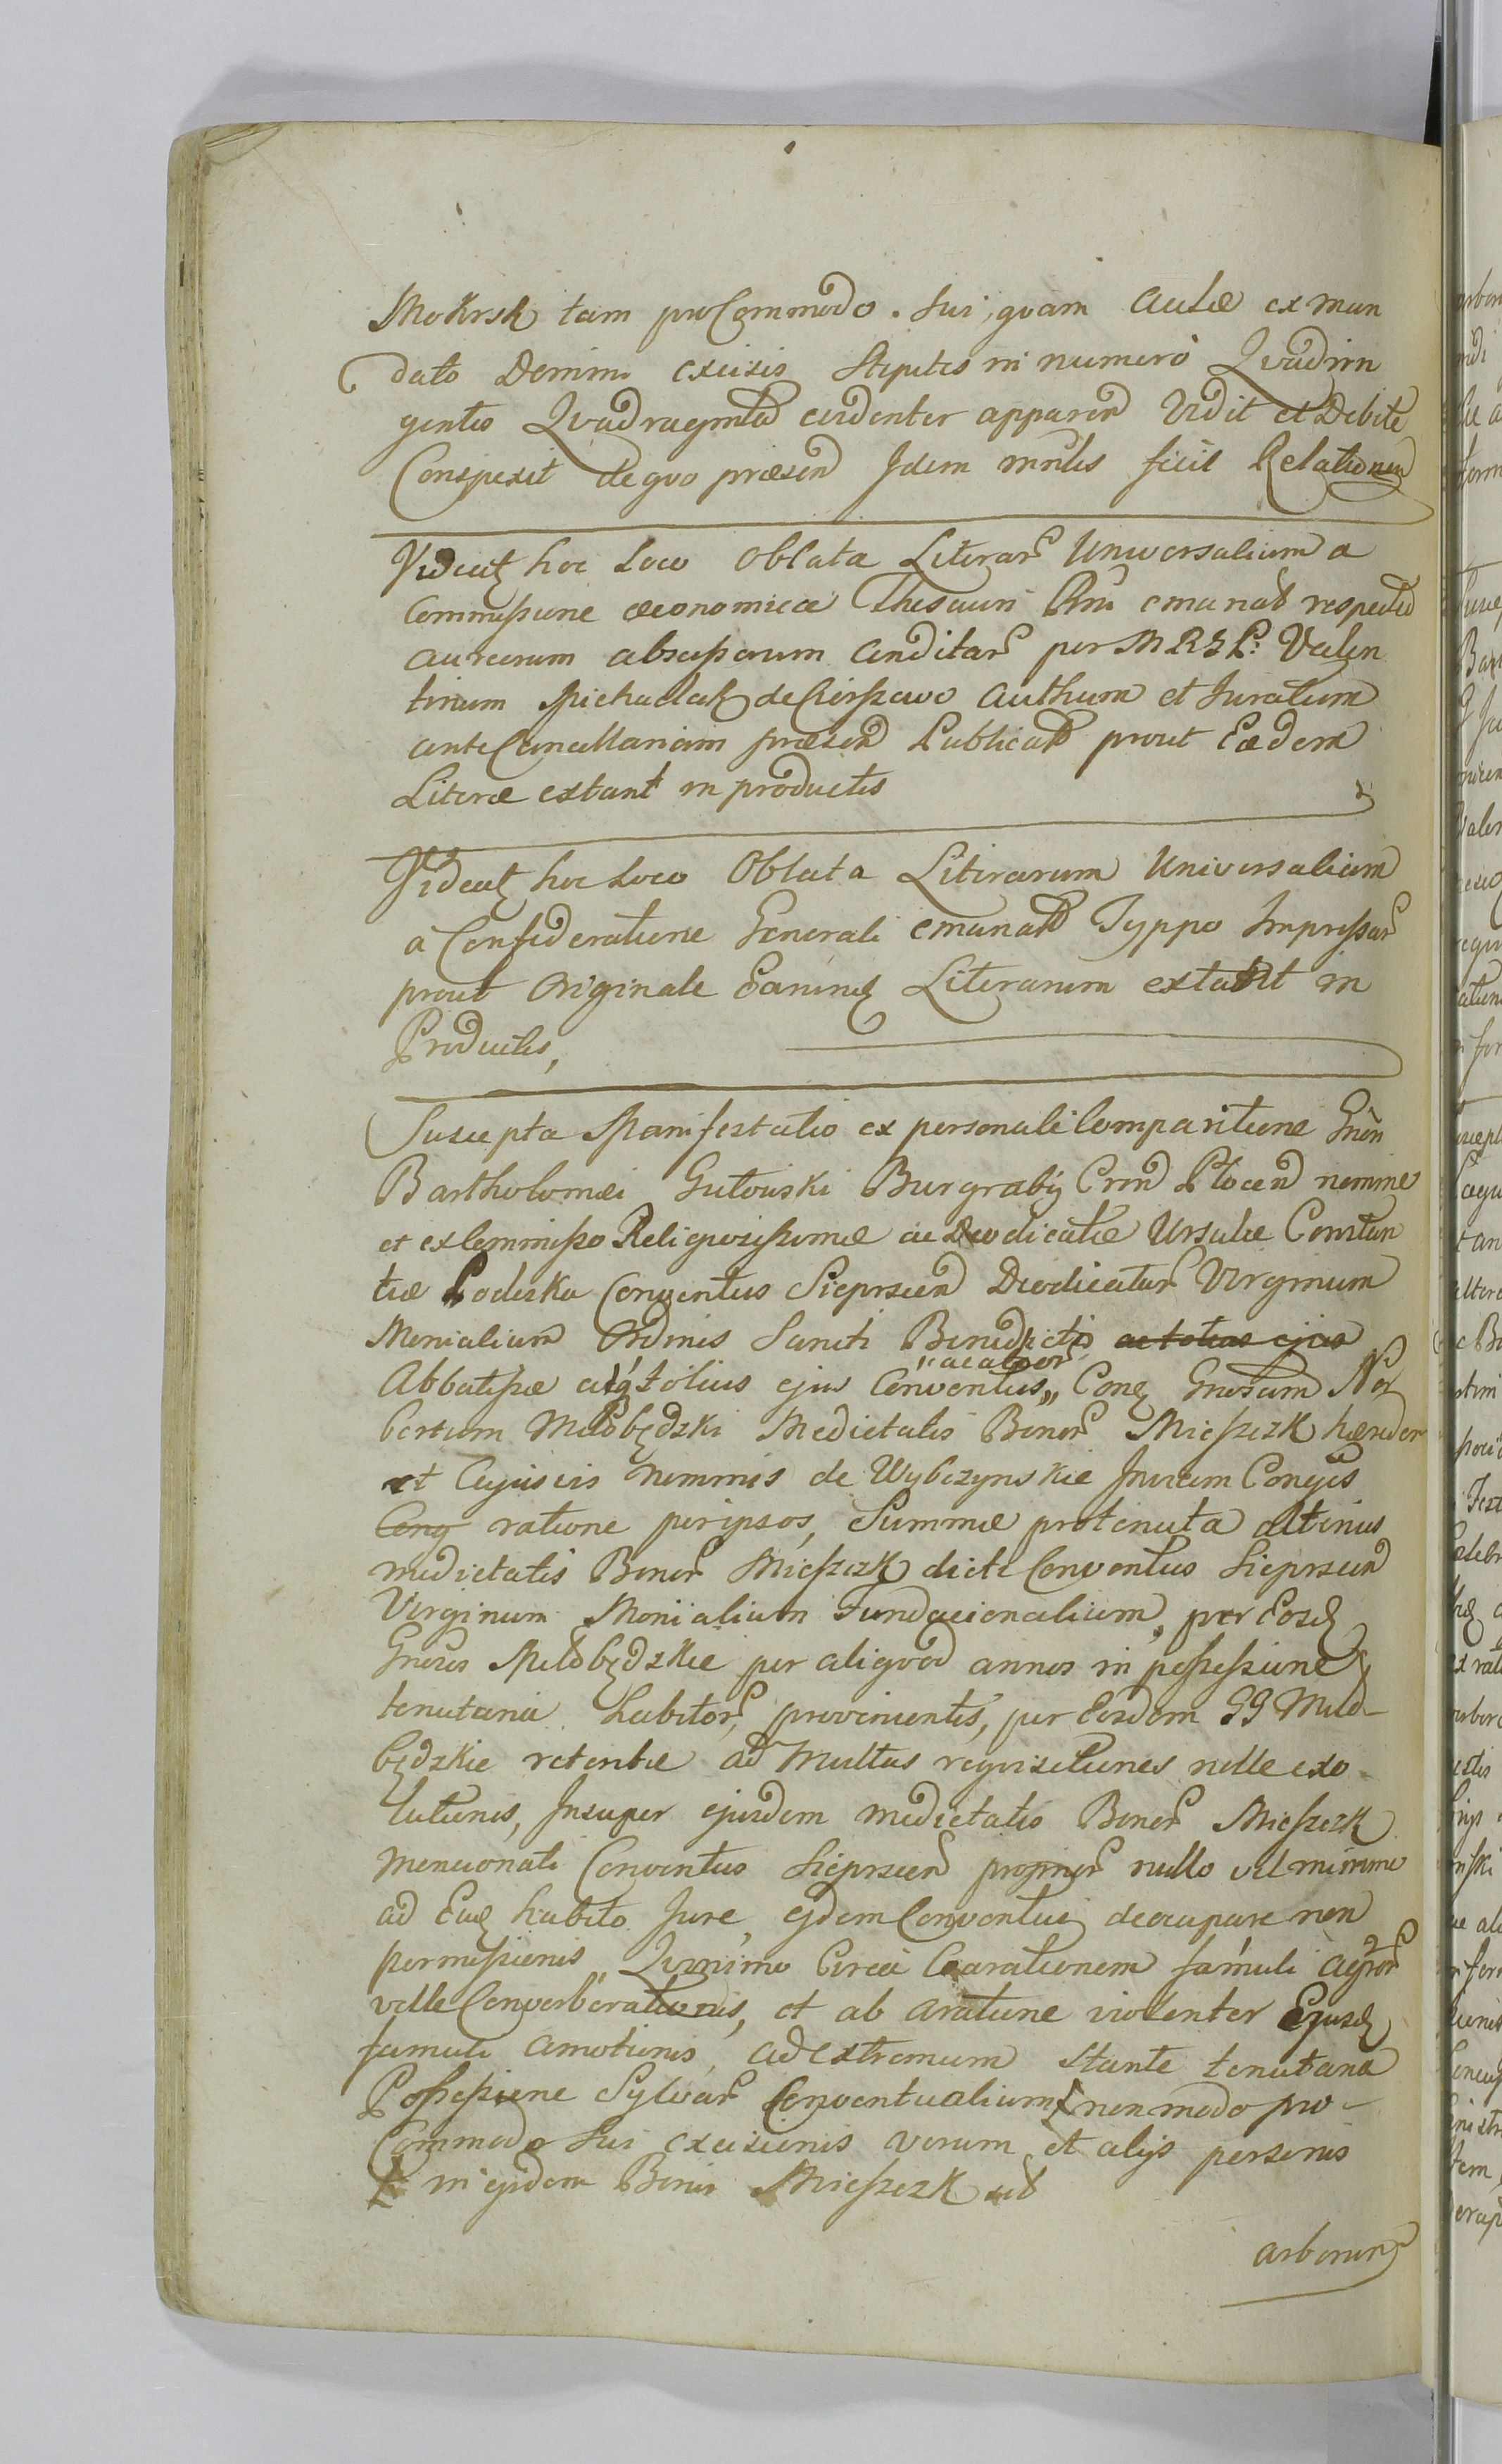 Mokrsk tam pro Commodo. sui, quam Aulæ ex man
dato Domini excisis Stipites in numero Quadrin
gentis Quadraginta evidenter apparen Vidit et Debite
Conspexit de quo præsen Idem mnlis fecit Relationem
Videatz hoc Loco Oblata Literar Universalium a
Commissione œconomica Thesauri Rni emanat respectu
aureorum abscissorum Conditar per M R G P: Valen
tinum Michaelak de Cierszewo Authum et Juratum
ante Cancellariam præsen Publicat prout Eædem
Literæ extant in productis
Videatz hoc Loco Oblata Literarum Universalium
a Confideratione Generali emanat Typpo Impressar
prout Originale Earundz Literarum extabit in
Productis,
Suscepta Manifestatio ex personali Comparitione Gnen
Bartholomæi Gutowski Burgrabij Crnd Plocen nomine
et ex Commisso Religiosissimæ ac Deodicatæ Ursulæ Constan
tiæ Podeska Conventus Sieprscen Deodicatar Virginum
Monialium Ordinis Sancti Benedicti ac totius ejus
Abbatissæ atq totius ejus Conventus „ Conq Gnosum Nor
"ac ator
bertum Miłobędzki Medietatis Bonor Mieszczk hæreden
et Cujusvis Nominis de Wybczynskie Invicem Conges
Cong ratione per ipsos, Summæ pro tenuta alterius
medietatis Bonor Mieszczk dicti Conventus Sieprscen
Virginum Monialium Fundacionalium, per Eosd
Gnosos Miłobędzkie per aliquod annos in possessione
tenutaria habitor, provenientis, per Eosdem GG Miło-
będzkie retentæ ad Multas requisitiones nolle exo-
lutionis, Insuper ejusdem medietatis Bonor Mieszczk
mencionati Conventus Sieprscen proprior nullo vel minimo
ad Eaq habito Jure, ejdem Conventui deoccupare non
permissionis Quinimo Circa Exarationem famuli agror
velle Converberationis, et ab aratione violenter Ejusd
famuli amotionis, ad extremum Stante tenutaria
Possessione Sylvar Conventualium non modo pro-
Commodo sui excisionis verum et alijs personis
in ejsdem Bonis Mieszczk ut
arborum